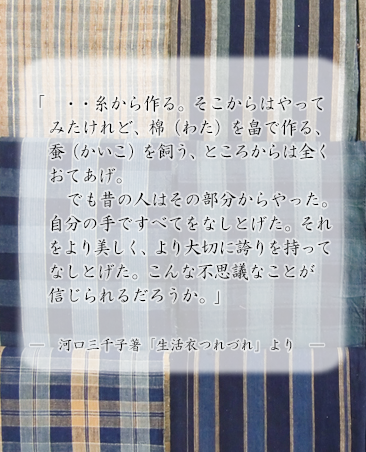 「　・・糸から作る。そこからはやって
みたけれど、棉（わた）を畠で作る、
蚕（かいこ）を飼う、ところからは全く
おてあげ。
　でも昔の人はその部分からやった。
自分の手ですべてをなしとげた。それ
をより美しく、より大切に誇りを持って
なしとげた。こんな不思議なことが
信じられるだろうか。」
―　河口三千子著「生活衣つれづれ」より　―